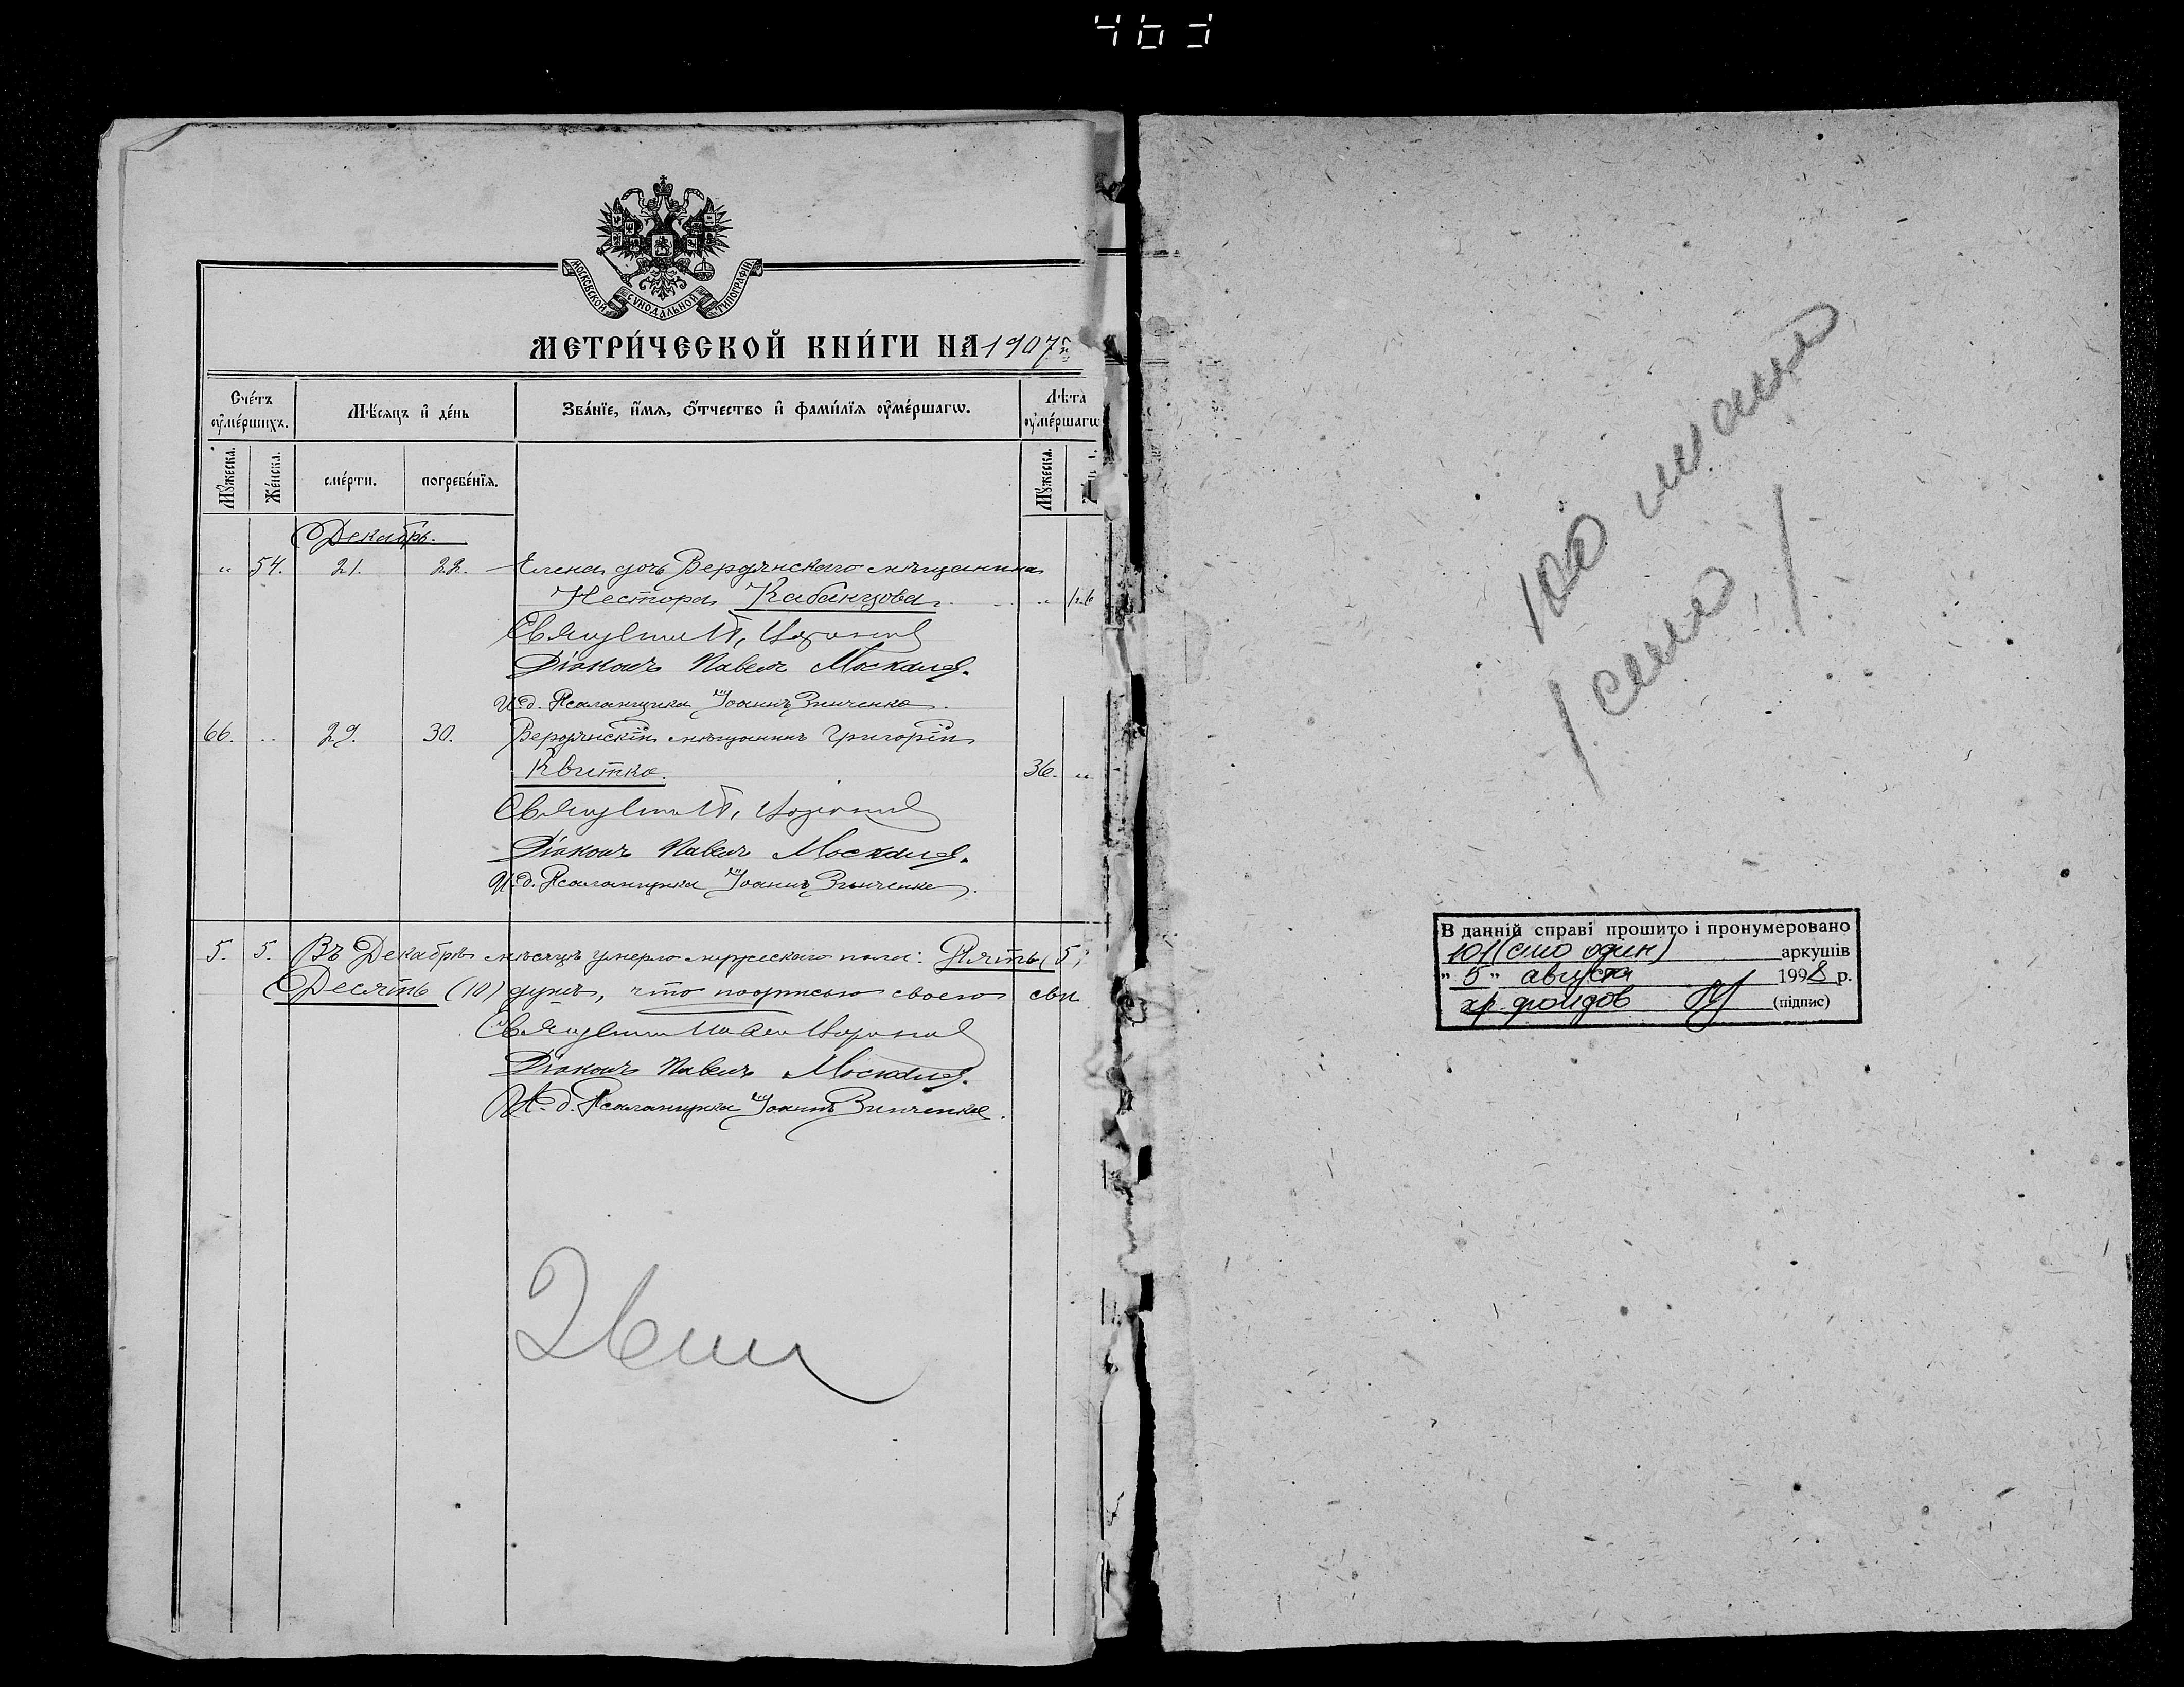 463
МОСКОВСКОЙ СУНОДАЛЬНОЙ ТИПОГРАФІИ
МЕТРИ́ЧЕСКОЙ КНИ́ГИ НА 1907
Сче́тъ оумéршихъ.
Мѣ́сяцъ и де́нь
Зва́нїе, и́мя, ѻ҆́тчество и фами́лїя оумéршагѡ.
Лѣта оумéршагѡ
Мꙋ́жеска.
Же́нска.
сме́рти.
погребе́нїя.
Мꙋ́жеска.
Декабрь.
" 54. 21. 22. Елена дочь Бердянскаго мѣщанина
Нестора Кабанцова. "
Священникъ
Діаконъ Павелъ Москалев.
И. д. Псаломщика Іоаннъ Зинченко.
66. " 29. 30. Бердянскій мѣщанинъ Григорій
Квитко. 36. "
Священникъ
Діаконъ Павелъ Москалев.
И. д. Псаломщика Іоаннъ Зинченко.
5. 5. Въ Декабрѣ мѣсяцѣ умерло мужескаго пола: Пять (5,
Десять (10) душъ, что подписью своею сви
Священникъ
Діаконъ Павелъ Москалев.
И. д. Псаломщика Іоаннъ Зинченко.
100 листов
/ сто /
В данній справі прошито і пронумеровано
101 (сто один) аркушів
" 5 " августа 1998 р.
хр. фондов (підпис)